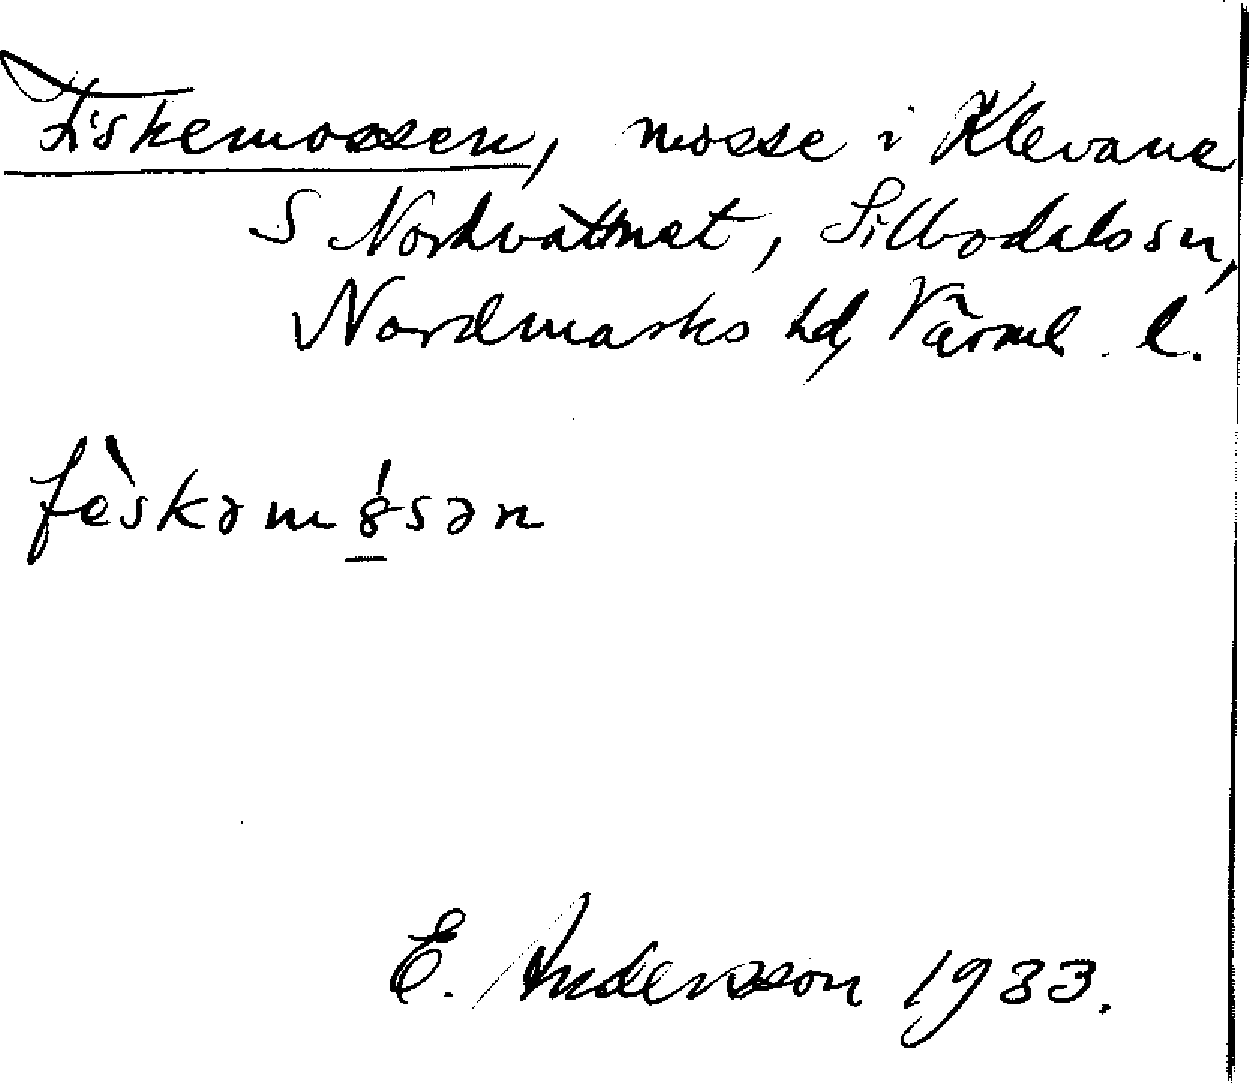 Fiskemossen, mosse i Klevane
S Nordvattnet, Sillbodals sn,
Nordmarks hd, Värml. l.
fèskəm8́sən
E. Andersson 1933.